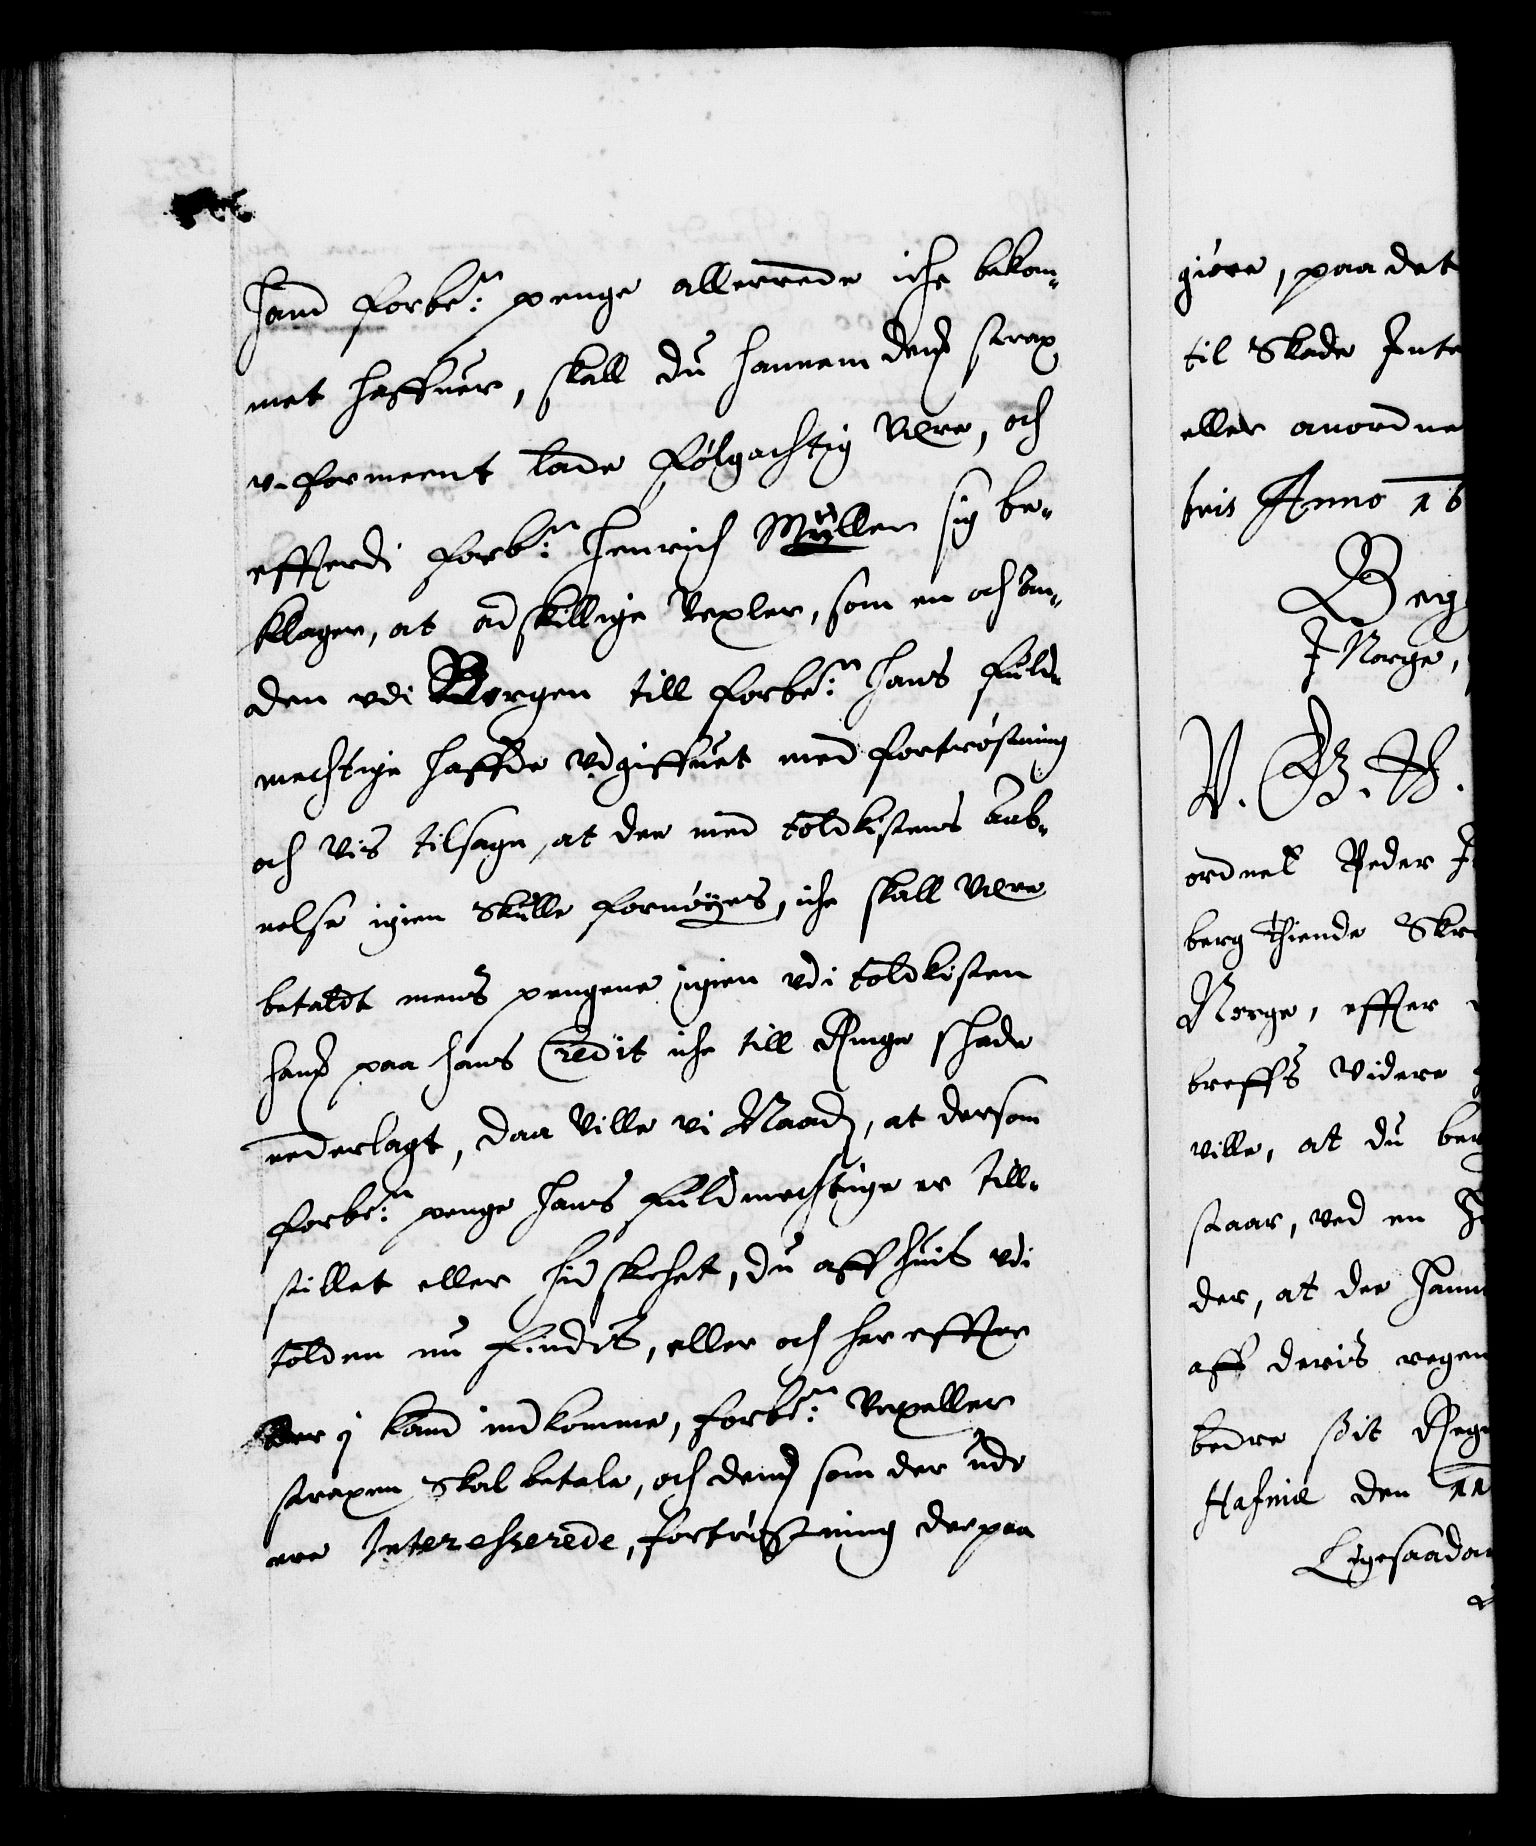 hand forbe:n penge allerrede iche bekom-
met haffuer, skall du hannem dend strax
v-formeent lade følgachtig være, och
effterdi forb:n Henrich Müller sig be-
klager, at adskillige Vexler, som en och an-
den vdi Bergen till forbe:n hans fuld-
mechtige haffde vdgiffuet med fortrøstning
och vis tilsagn, at der med toldkistens aab-
nelse igien skulle fornøyes, iche skall være
betaldt mens pengene igien vdi toldkisten
hans paa hans Credit iche till Ringe schade
nederlagt, daa ville vi Naad:, at dersom
forbe:n penge hans fuldmechtige er till-
stillet eller hid skichet, du aff huis vdi
tolden nu findis, eller och her effter
der j kand indkomme, forbe:n Vexeller
straxen skal betale, och dennd som der udi
ere Interesserede, fortrøstning der paa
giøre, paa det
til Skade Inte
eller anordne
bris Anno 16
Berg
I Norge,
V. G. T.
ordnet Peder
berg Thiende Skr
Norge, effter
breffs videre
ville, at du be
staar, ved en
der, at der hann
aff deris regen
bedre sit Reg
Hafniæ den 11
Ligesaada